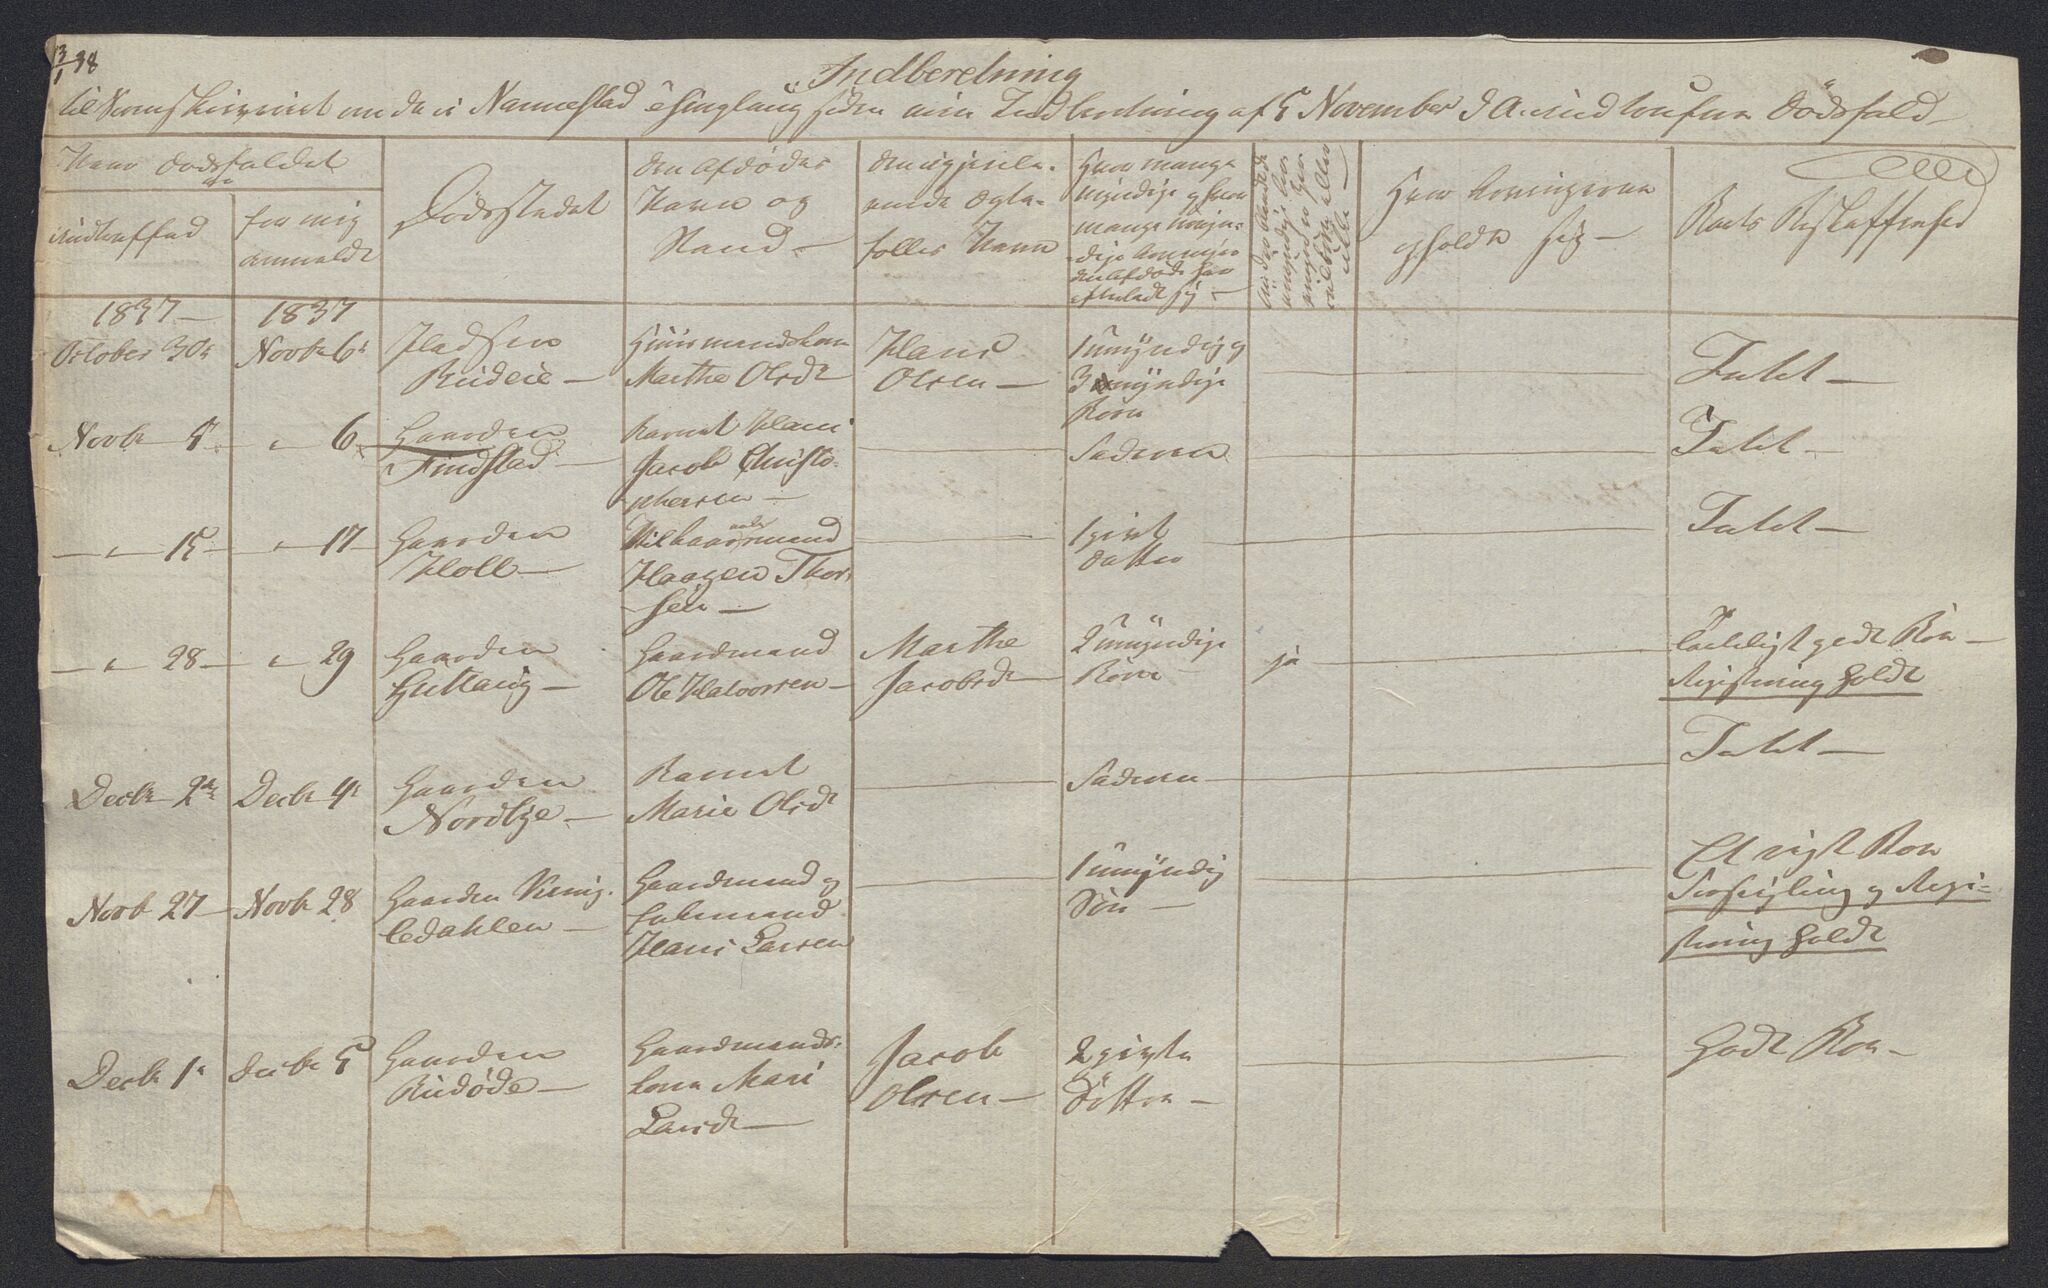 13/1 38
Indberetning
til Sorenskriveriet om de i Nannestad Thinglaug siden min Indberetning af 5 November d A. indtrufne Dödsfald
Naar Dødsfaldet er
indtruffed
for mig anmeldt
Dödsstedet
den Afdödes
Navn og
Stand
den igjenle-
vende Ægte-
fælles Navn
Hvor mange
myndige og hvor
mange umyn-
dige Arvinger
den Afdöde har
efterladt sig
Hvor Arvingerne
opholde sig
Boets Beskaffenhed
1837 1837
October 30te Novbr 6te
Rudeie
Huusmandskone
Marthe Olsdr
Hans
Olsen
1 umyndig og
3 myndige
Börn
Fatet
Novbr 5 " 6
Gaarden
Findstad
Barnet Hans
Jacob Christo-
phersen
Faderen
Fatet
" 15 " 17
Gaarden
Holl
Haagen Thor-
sen
1 gift
Datter
Fatet
" 28 " 29
Gaarden
Guttaug
Gaardmand
Ole Halvorsen
Marthe
Jacobsdr
2 umyndige
Börn
ja
godt Boe
Registrering holdt
Decbr 2den Decbr 4de
Gaarden
Nordbye
Barnet
Marie Olsdr
Faderen
Fatet
Novb 27 Novbr 28
Gaarden
Gaardmand og
Hans Larsen
1 umyndig
Sön
Et rigt Boe
Forseigling og Regi-
strering holdt
Decbr 1te Decbr 5
Gaarden
Rudöde
Gaardmands-
kone Mari
Larsdr
Jacob
Olsen
2 gifte
Döttre
Godt Boe